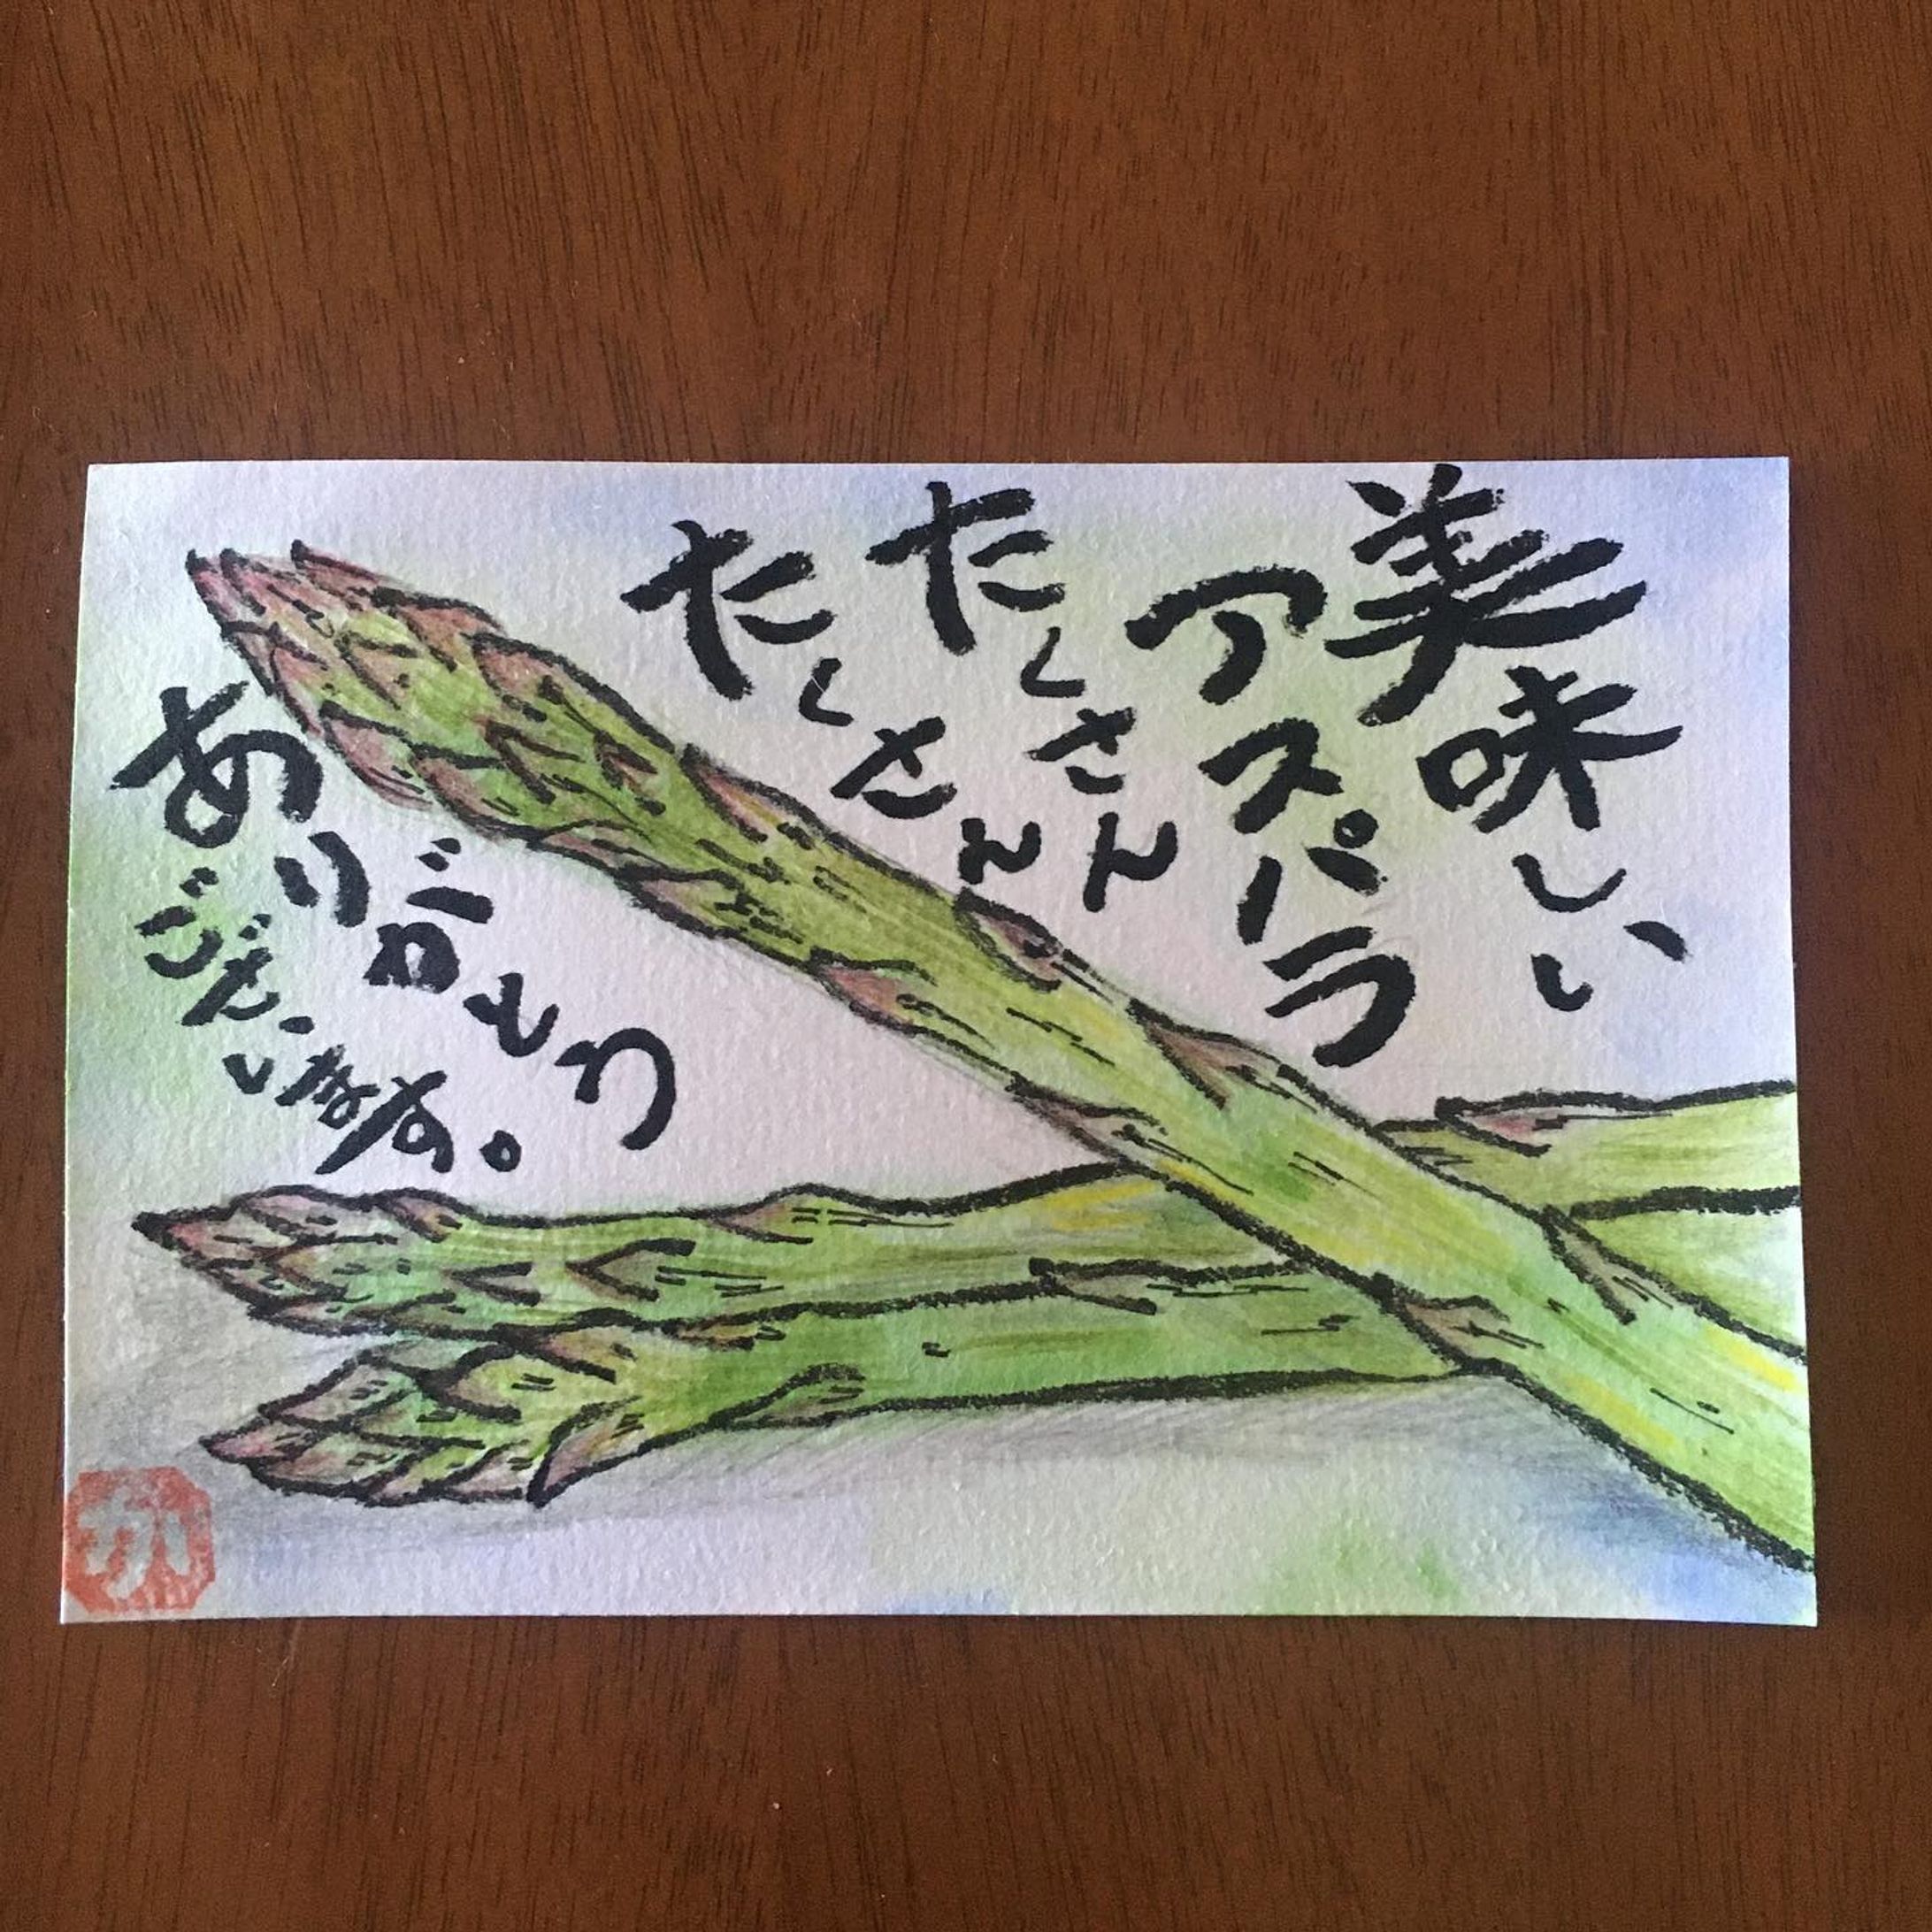 美味しい
アスパラ
たくさん
たくさん
ありがとう
ございます。
か